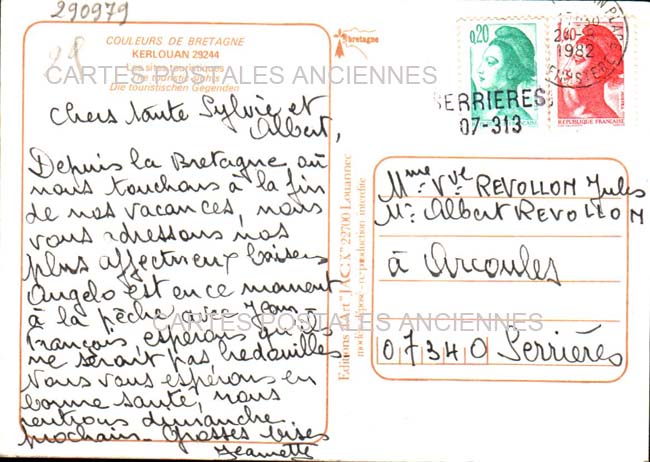 290979
28
COULEURS DE BRETAGNE
KERLOUAN 29244
Les sites touristiques
The touristic sights
Die touristischen Gegenden
CARTES POSTALES ANCIENNES
Chers tante Sylvie et
Albert,
Depuis la Bretagne où
nous touchons à la fin
de nos vacances, nous
vous adressons nos
plus affectueux baisers
Angelo est en ce moment
à la pêche avec Jean-
François, espérons qu'ils
ne seront pas bredouilles
Nous vous espérons en
bonne santé, nous
rentrons dimanche
prochain - Grosses bises
Jeannette
CARTES POSTALES ANCIENNES
Editions d'Art "JACK" 22700 Louannec
modèle déposé - reproduction interdite
bretagne
0,20
REPUBLIQUE FRANÇAISE
1982
SERRIERES
07-313
Mme Vve REVOLLON Jules
Mr Albert REVOLLON
à Arcoules
07340 Serrières